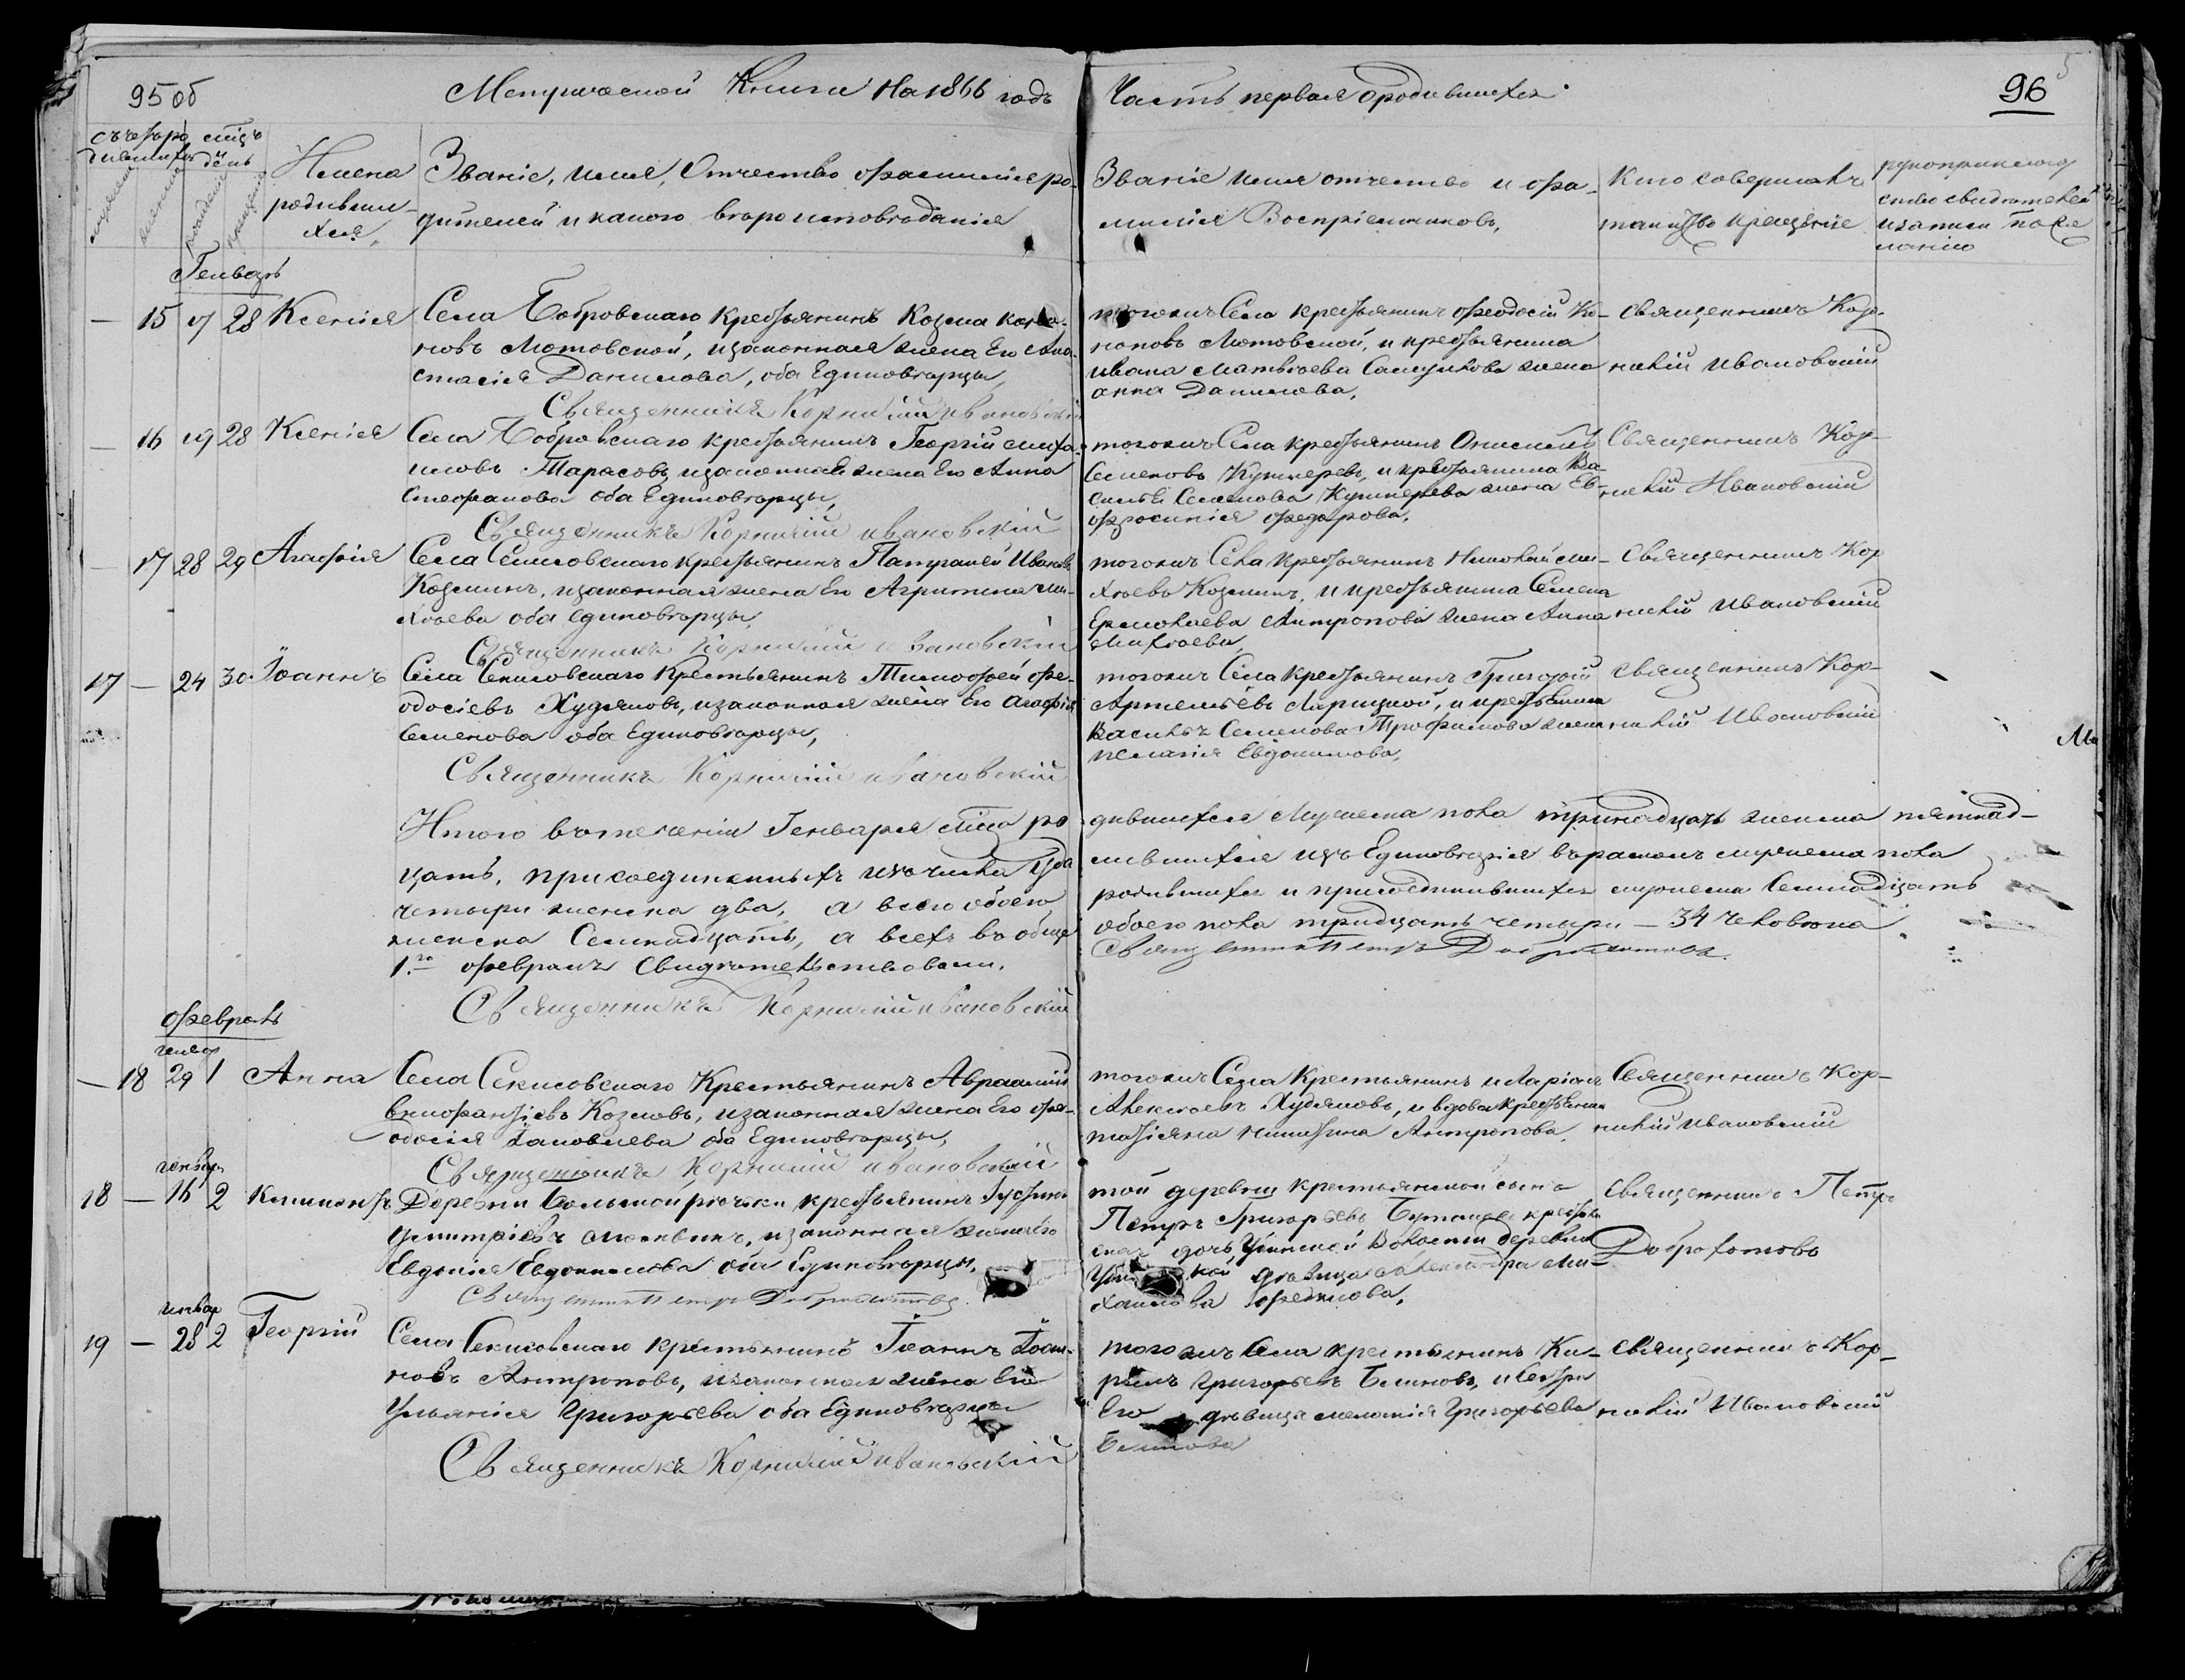 95 об
Метрической Книги На 1866 годъ
Часть первая о родившихся
96
Имена родившихся
Званіе, имя, Отчество и фамилія ро-
дителей и какого вероисповѣданія
Званіе имя отчество и фа-
милія Воспріемниковъ,
Кто совершалъ
таинство крещеніе
рукоприкладство
свидѣтелей
и записи по же
ланію
Генварь
— 15 17 28 Ксенія
Села Бобровскаго Крестьянинъ Козма Коно-
новъ Мотовской, и законная жена Его Ана-
стасія Данилова, оба Единовѣрцы,
Священникъ Корнилій Ивановскій
тогожъ Села крестьянинъ Феодосій Ко-
ноновъ Мотовской, и крестьянина
Ивана Матвѣева Сапункова жена
Анна Данилова,
Священникъ Кор-
нилій Ивановскій
— 16 19 28 Ксенія
Села Бобровскаго крестьянинъ Георгій Миха-
иловъ Тарасовъ, и законная жена Его Анна
Стефанова оба Единовѣрцы,
Священникъ Корнилій Ивановскій
тогожъ Села крестьянинъ Онисимъ
Семеновъ Кушнеревъ, и крестьянина Ва-
силья Семенова Кушнерева жена Ев-
фросинія Федорова,
Священникъ Кор-
нилій Ивановскій
— 17 28 29 Агафія
Села Секисовскаго крестьянинъ Патрикей Ивановъ
Козминъ, и законная жена Его Агрипина Ми-
хѣева оба единовѣрцы
Священникъ Корнилій Ивановскій
тогожъ Села Крестьянинъ Николай Ми-
хѣевъ Козминъ, и крестьянина Семена
Ермолаева Антропова жена Анна
Михѣева,
Священникъ Кор
нилій Ивановскій
17 — 24 30 Іоаннъ
Села Секисовскаго Крестьянинъ Тимофей Фе-
одосіевъ Худяковъ, и законная жена Его Агафія
Семенова оба Единовѣрцы,
Священникъ Корнилій Ивановскій
тогожъ Села Крестьянинъ Григорій
Артемьевъ Ларицкой, и крестьянина
Василья Семенова Трофимова жена
Пелагія Евдокимова,
Священникъ Кор-
нилій Ивановскій
Итого въ теченіи Генваря м҃ца ро
дившихся Мужеска пола тринадцать женска пятнад-
цать, присоединенныхъ изъ числа
лившихся изъ Единовѣрія въ мужеска пола
четыри женска два, а всего обоего
родившихся и присоединившихся мужеска Семнадцать
женска Семнадцать, а всехъ вообще
обоего пола тридцать четыри — 34 человѣка
1.го Февраля Свидѣтельствовали.
Священникъ Петръ Доброхотовъ
Священникъ Корнилій Ивановскій
Февраль
генвар
— 18 29 1 Анна
Села Секисовскаго Крестьянинъ Авраамій
Внифантіевъ Козловъ, и законная жена Его Фео-
досія Іаковлева оба Единовѣрцы,
Священникъ Корнилій Ивановскій
тогожъ Села Крестьянинъ Иларіонъ
Алексѣевъ Худяковъ, и вдова крестьянка
Татіяна Никитина Антропова.
Священникъ Кор-
нилій Ивановскій
генвар
18 — 16 2 Климентъ
Деревни Большой рѣчки крестьянинъ Іустинъ
Дмитріевъ Москвинъ, и законная жена Его
Евдокія Евдокимова оба Единовѣрцы.
Священникъ Петръ Доброхотовъ
той деревни крестьянской сынъ
Петръ Григорьевъ крестьян
ская дочь, Убинской Волости деревни
Уби кой дѣвица Александра Ми-
хаилова
Священникъ Петръ
Доброхотовъ
генвар
19 — 28 2 Георгій
Села Секисовскаго крестьянинъ Іоаннъ Іоан-
новъ Антроповъ, и законная жена Его
Ульянія Григорьева оба Единовѣрцы
Священникъ Корнилій Ивановскій
тогожъ Села крестьянинъ Ки-
рилъ Григорьевъ Блиновъ, и Сестра
Его дѣвица Меланія Григорьева
Блинова
Священникъ Кор-
нилій Ивановскій